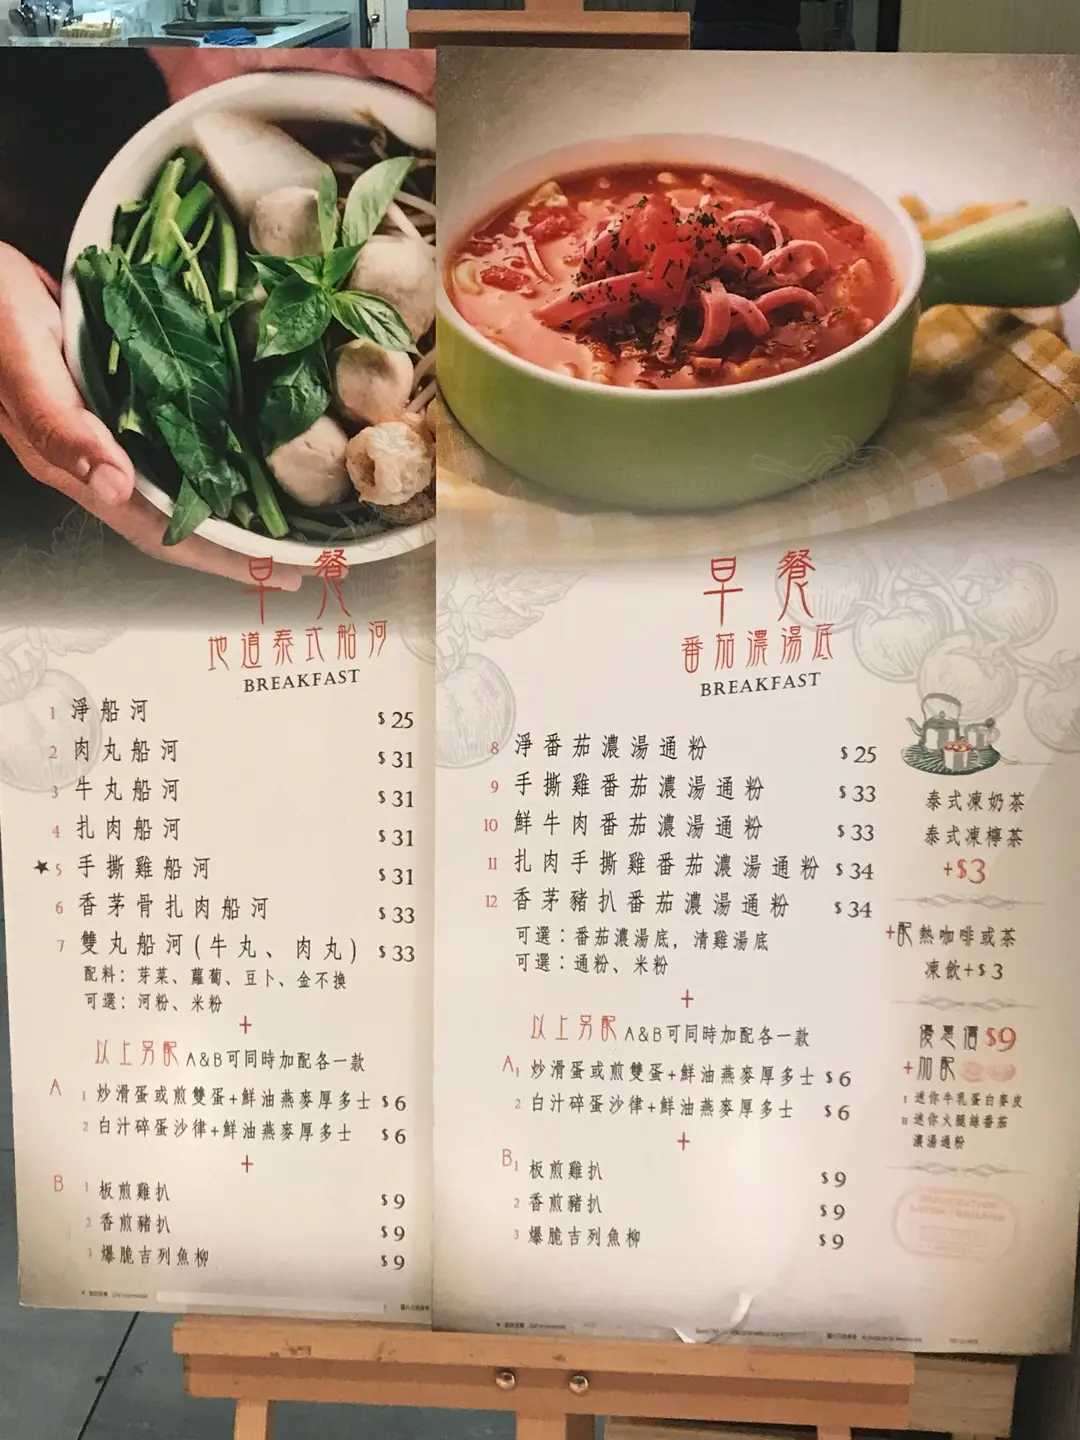 早餐
地道泰式船河
BREAKFAST
1 淨船河 $25
2 肉丸船河 $31
3 牛丸船河 $31
4 扎肉船河 $31
★5 手撕雞船河 $31
6 香茅骨扎肉船河 $33
7 雙丸船河(牛丸、肉丸) $33
配料：芽菜、蘿蔔、豆卜、金不換
可選：河粉、米粉
+
以上另配 A&B可同時加配各一款
A 1 炒滑蛋或煎雙蛋+鮮油燕麥厚多士 $6
2 白汁碎蛋沙律+鮮油燕麥厚多士 $6
+
B 1 板煎雞扒 $9
2 香煎豬扒 $9
3 爆脆吉列魚柳 $9
早餐
番茄濃湯底
BREAKFAST
8 淨番茄濃湯通粉 $25
9 手撕雞番茄濃湯通粉 $33
10 鮮牛肉番茄濃湯通粉 $33
11 扎肉手撕雞番茄濃湯通粉 $34
12 香茅豬扒番茄濃湯通粉 $34
可選：番茄濃湯底，清雞湯底
可選：通粉、米粉
+
以上另配 A&B可同時加配各一款
A 1 炒滑蛋或煎雙蛋+鮮油燕麥厚多士 $6
2 白汁碎蛋沙律+鮮油燕麥厚多士 $6
+
B 1 板煎雞扒 $9
2 香煎豬扒 $9
3 爆脆吉列魚柳 $9
泰式凍奶茶
泰式凍檸茶
+$3
+配熱咖啡或茶
凍飲+$3
優惠價$9
+加配
I 迷你牛乳蛋白麥皮
II 迷你火腿絲番茄
濃湯通粉